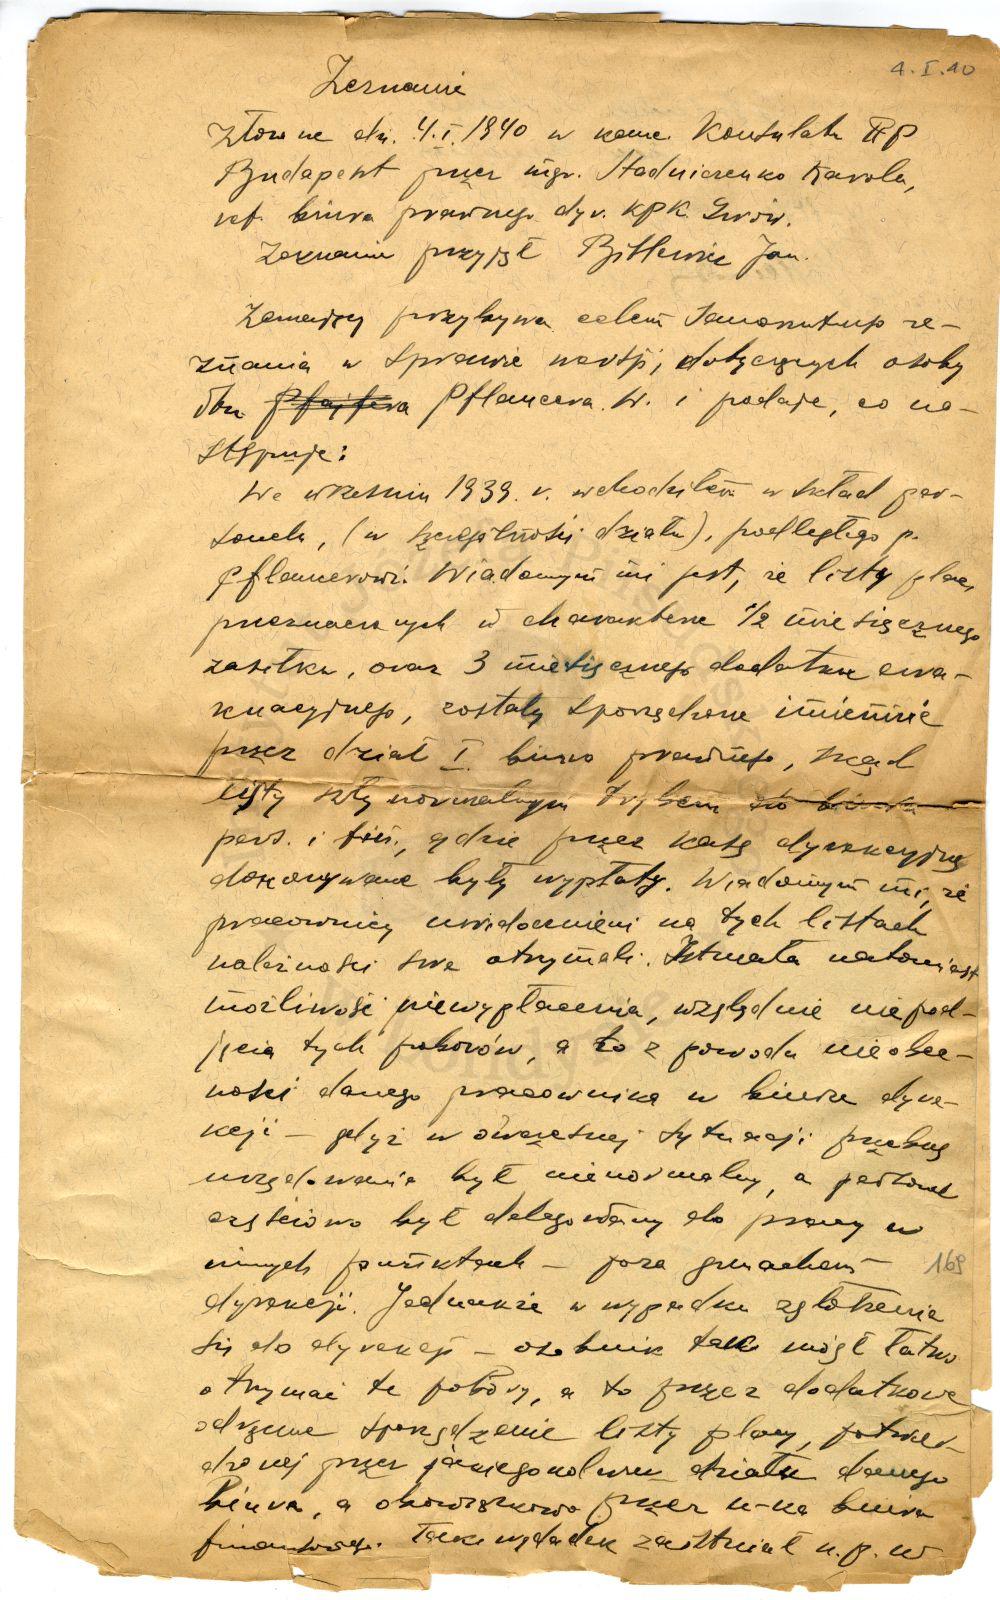 4.I.40
Zeznanie
złożone dn. 4.I.1940 w kanc. Konsulatu RP
Budapeszt przez mgr. Stadniczenko Karola,
ref. biura prawnego dyr. KPK Lwów.
Zeznanie przyjął Bitlewicz Jan.
Zeznający przybywa celem ze-
znania w sprawie dotyczących osoby
Pfajfera Pflancera W. i podaje, co na-
stępuje:
We wrześniu 1939. r. wchodziłem w skład per-
sonelu, (w szczególności działu), podległego p.
Pflancerowi. Wiadomym mi jest, że listy płac
przeznaczonych w charakterze 1/2 miesięcznego
zasiłku, oraz 3 miesięcznego dodatku ewa-
kuacyjnego, zostały sporządzone imiennie
przez dział I. biura prawnego, skąd
listy szły normalnym trybem do biura
pers. i fin., gdzie przez kasę dyrekcyjną
dokonywane były wypłaty. Wiadomym mi, że
pracownicy uwidocznieni na tych listach
należności swe otrzymali. Istniała natomiast
możliwość niewypłacenia, względnie niepod-
jęcia tych poborów, a to z powodu nieobec-
ności danego pracownika w biurze dyre-
kcji – gdyż w ówczesnej sytuacji przebieg
urzędowania był nienormalny, a personel
częściowo był delegowany do pracy w
innych punktach – poza gmachem 169
dyrekcji. Jednakże w wypadku zgłoszenia
się do dyrekcji – osobnik taki mógł łatwo
otrzymać te pobory, a to przez dodatkowe
odręczne sporządzenie listy płacy, potwier-
dzonej przez jakiegokolwiek działu danego
biura, a obowiązkowo przez n-ka biura
finansowego. Taki wypadek zaistniał n.p. w